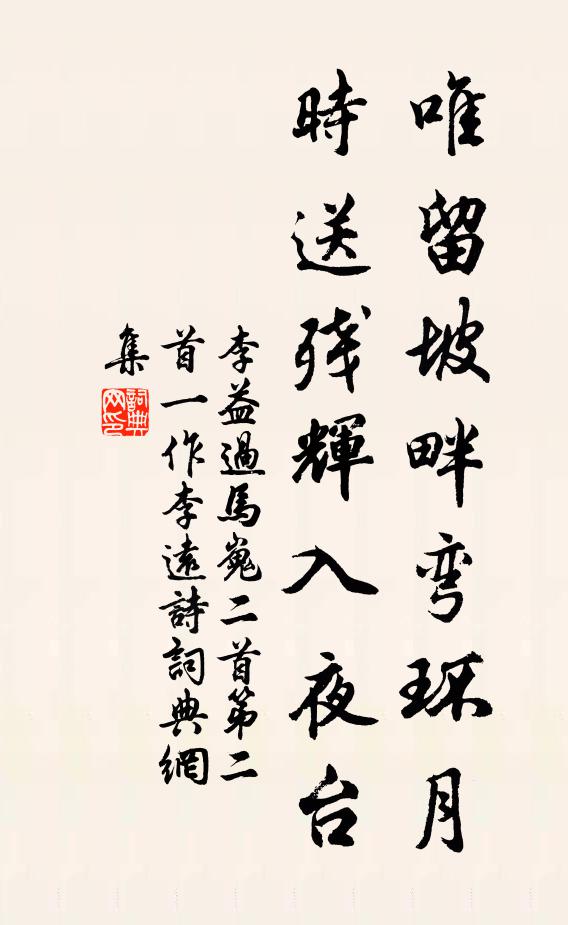 唯留坡畔弯环月
時送残輝入夜台
李益過馬嵬二首第二
首一作李遠詩詞典網
集
詞典
网印